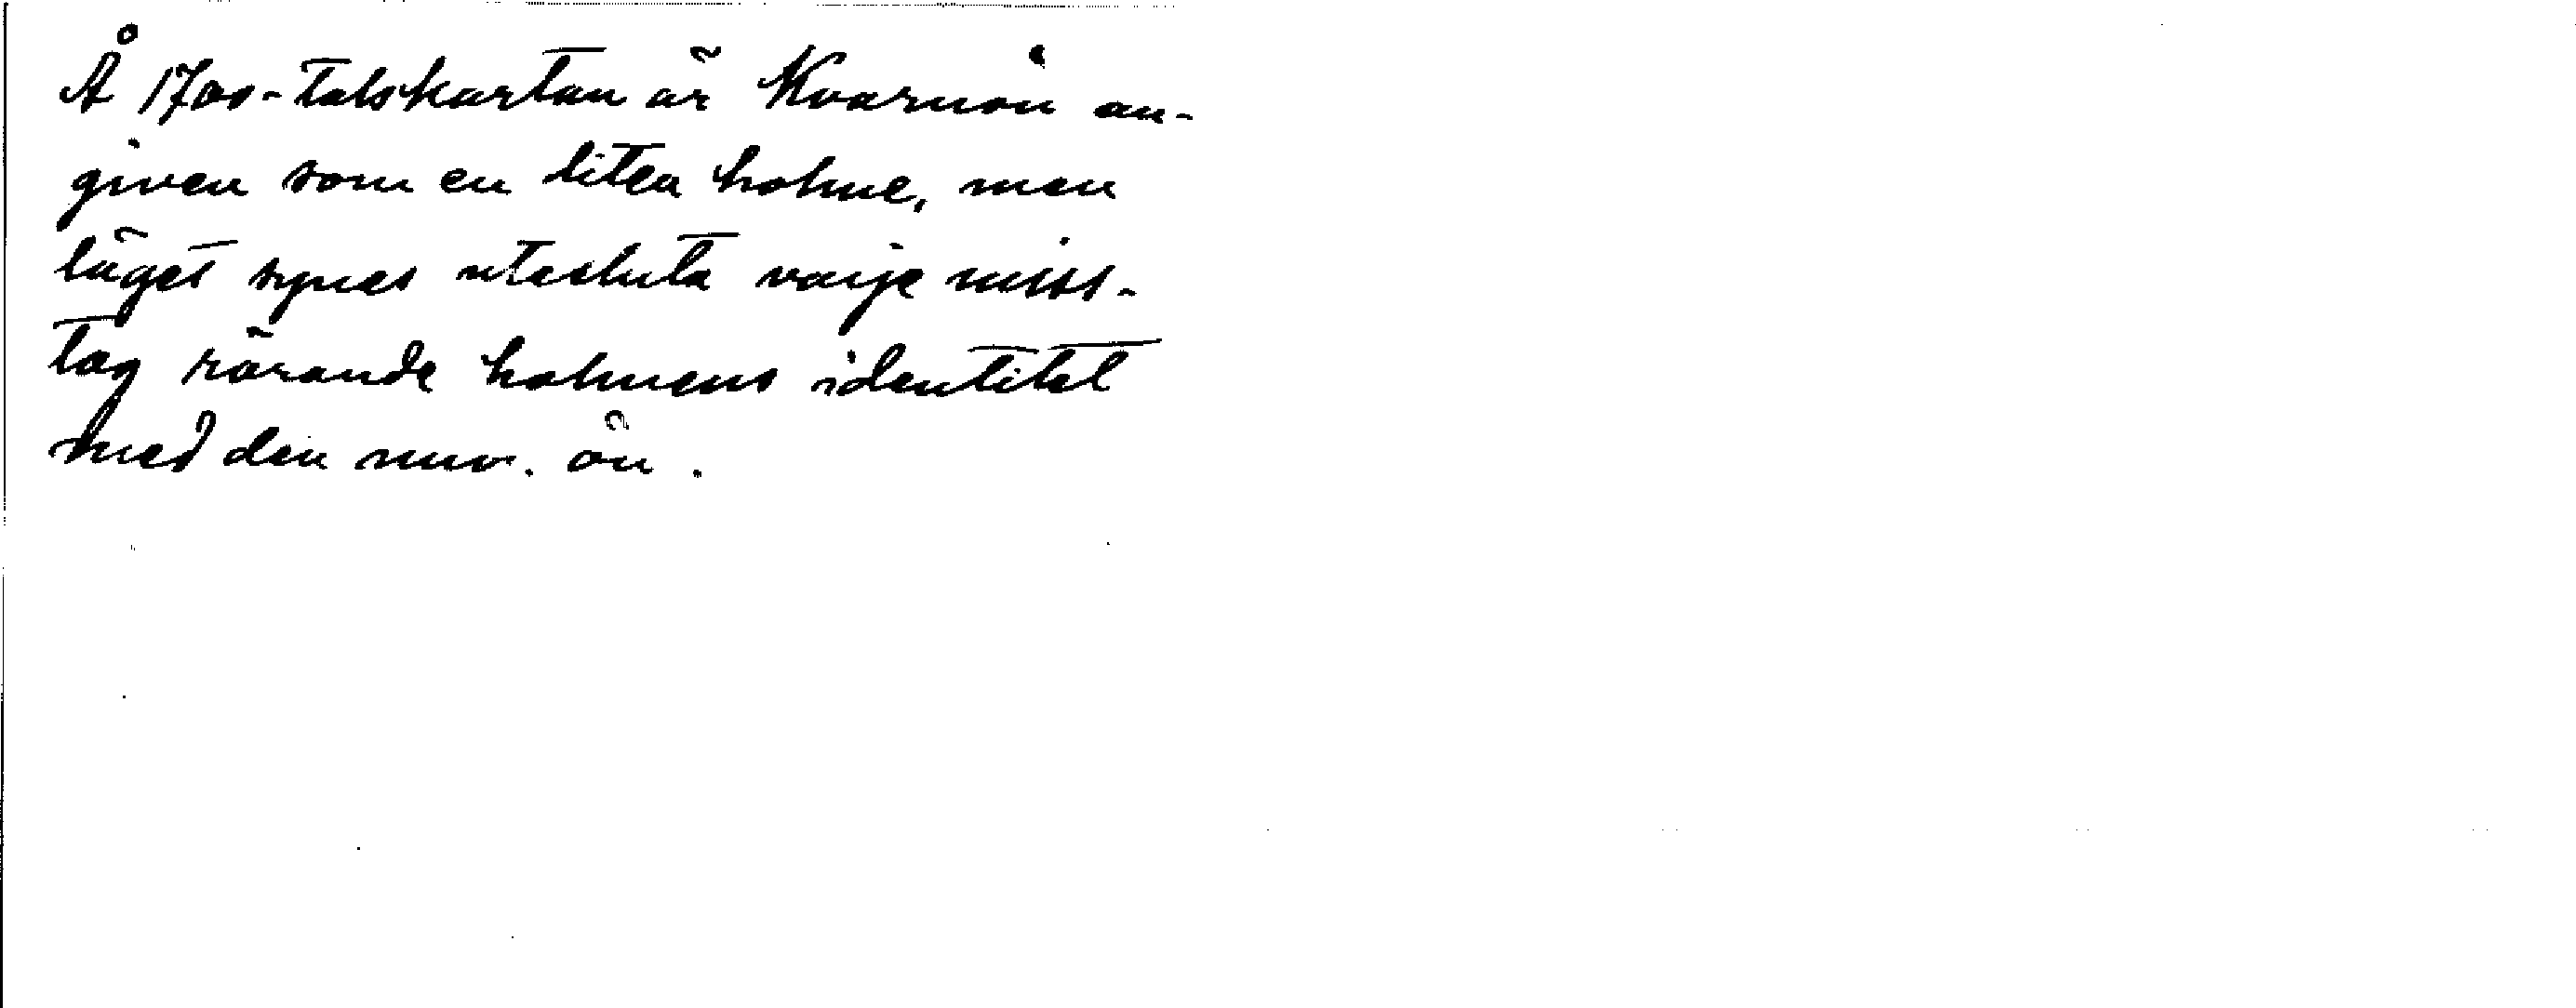 Å 1700-talskartan är Kvarnön an-
given som en liten holme, men
läget synes utesluta varje miss-
tag rörande holmens identitet
med den nuv. ön.